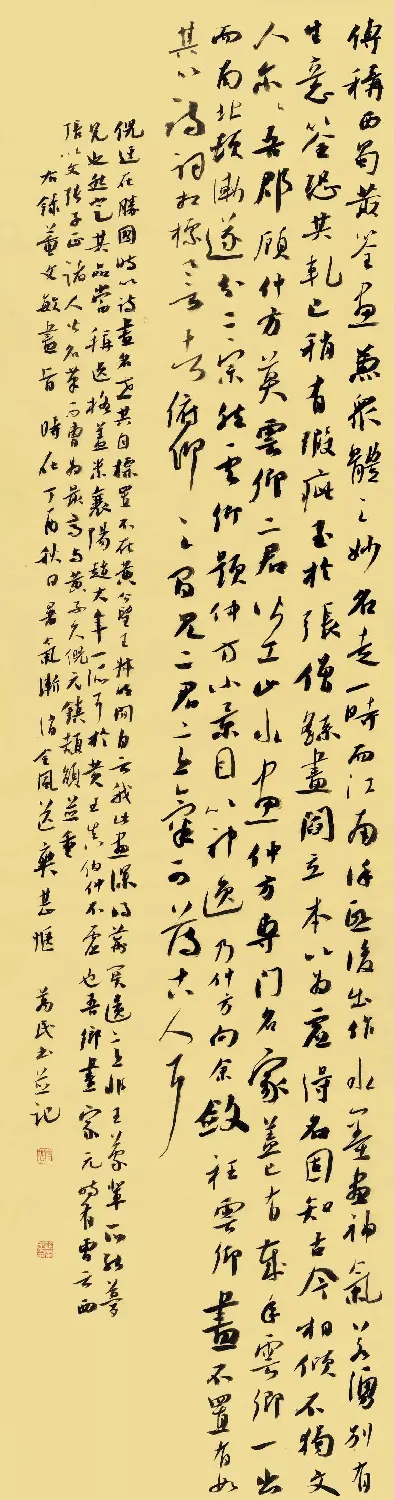 傳稱西蜀黃荃畫兼衆體之妙名走一時而江南徐熙後出作水墨畫神氣若湧別有
生意筌恐其軋己稍有瑕疵至於張僧繇畫閻立本以為虛得名固知古今相傾不獨文
人尔尔吾郡顧仲方莫雲卿二君皆工山水畫仲方專門名家蓋已有歲年雲卿一出
而南北頓漸遂分二宗然雲卿題仲方小景目以神逸乃仲方向余斂衽雲卿畫不置有如
其以詩詞相標譽者俯仰之間見二君之意氣可薄古人耳
倪迂在勝國時以詩畫名世其自標置不在黃公望王叔明閒自云我此畫深得荊關遺意非王蒙輩所能夢
見也然定其品當稱逸格蓋米襄陽趙大年一派耳於黃王真伯仲不虛也吾鄉畫家元時有曹云西
張以文張子正諸人皆名筆而曹為最高與黃子久倪元鎮頡頏並重
右錄董文敏畫旨 時在丁酉秋日暑氣漸消金風送爽甚愜 民書並記